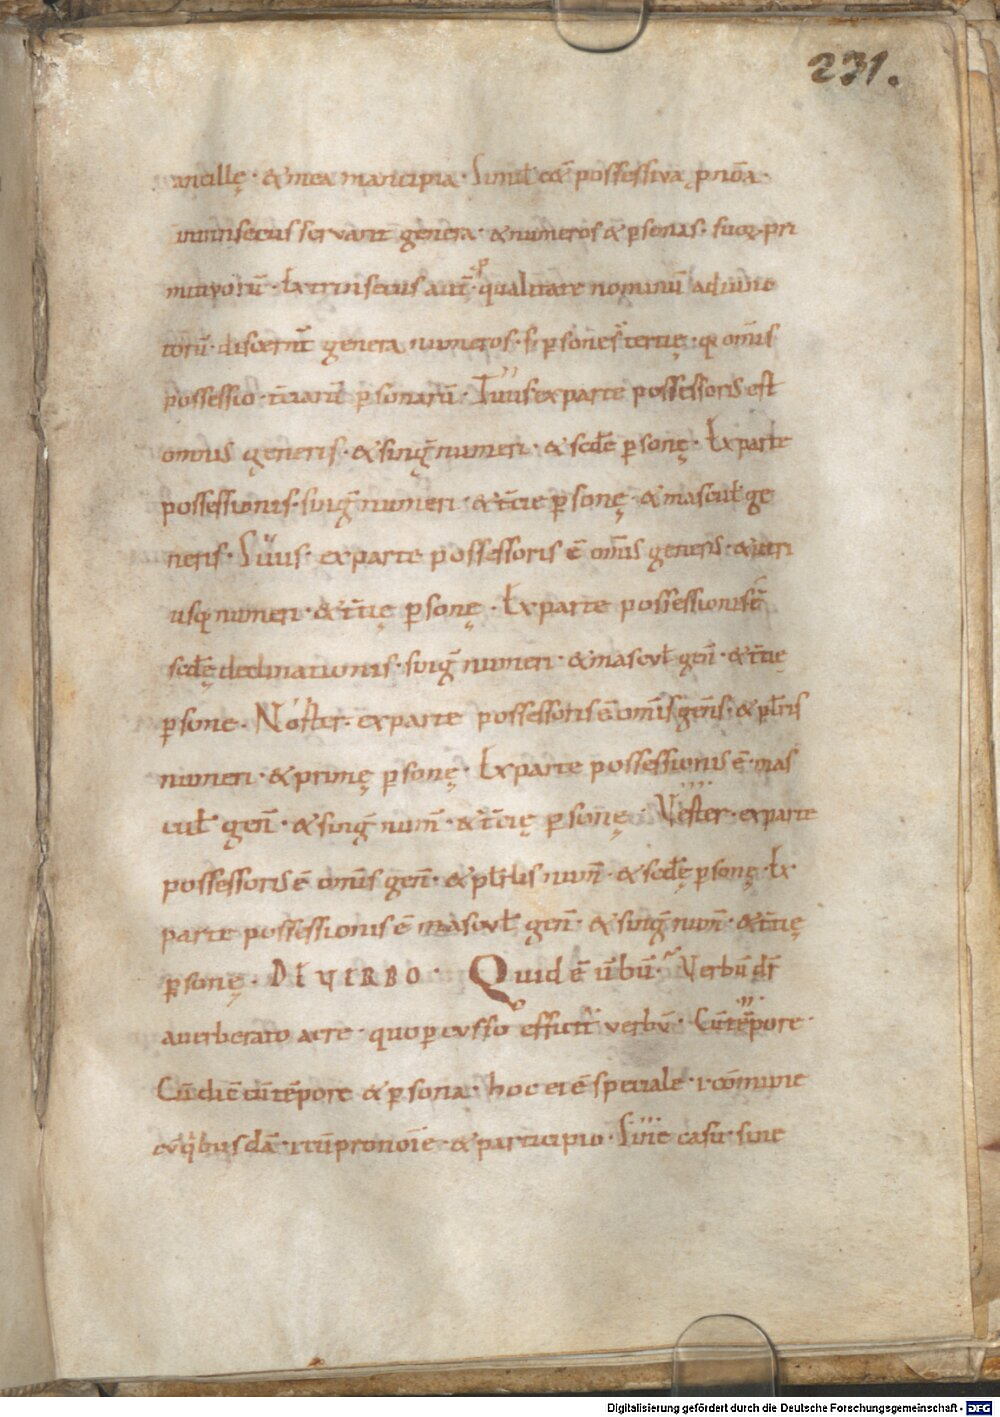 231.
ancillę · & mea mancipia · Simil̄ & possessiva p̱ nōa ·
intrinsecus servant genera · & numeros & p̱sonas · suoꝝ pri
mitivorū · Extrinsecus aut̄ · p̱ qualitate nominū adiunc
torū · discernt̄ genera numeros · s; p̱sone st̄ tertię · qꝫ om̄is
possessio · t̄ciarū p̱sonarū · Tuus ex parte possessoris est
omnis generis · & sinḡ numeri · & scd̄e p̱sonę · Ex parte
possessionis · sinḡ numeri · & t̄cie p̱sonę · & mascul̄ ge
neris · Suus · ex parte possessoris ē om̄is generis · & utri
usqꝫ numeri · & t̄cię p̱sonę · Ex parte possessionis ē
scd̄ę declinationis · sinḡ numeri · & mascul̄ gen̄ · & t̄cię
p̱sone · Noster · ex parte possessoris ē om̄is gen̄is · & pl̄ris
numeri · & primę p̱sonę · Ex parte possessionis ē · mas
cul̄ gen̄ · & sinḡ num̄ · & t̄cię p̱sonę · Vester · ex parte
possessoris ē om̄is gen̄ · & pl̄ralis num̄ · & scd̄ę p̱sonę · Ex
parte possessionis ē mascul̄ gen̄ · & sinḡ num̄ · & t̄cię
p̱sonę · DE VERBO · Quid ē ūbū · Verbū dr̄
a verberato aere · quo p̱cusso efficit̄ verbū · Cū tēpore ·
Cū dic̄ cū tēpore & p̱sona · hoc ei ē speciale · & cōmune
cū q̇busdā · & cū pronoīe · & participio · Sine casu · sine
Digitalisierung gefördert durch die Deutsche Forschungsgemeinschaft - DFG